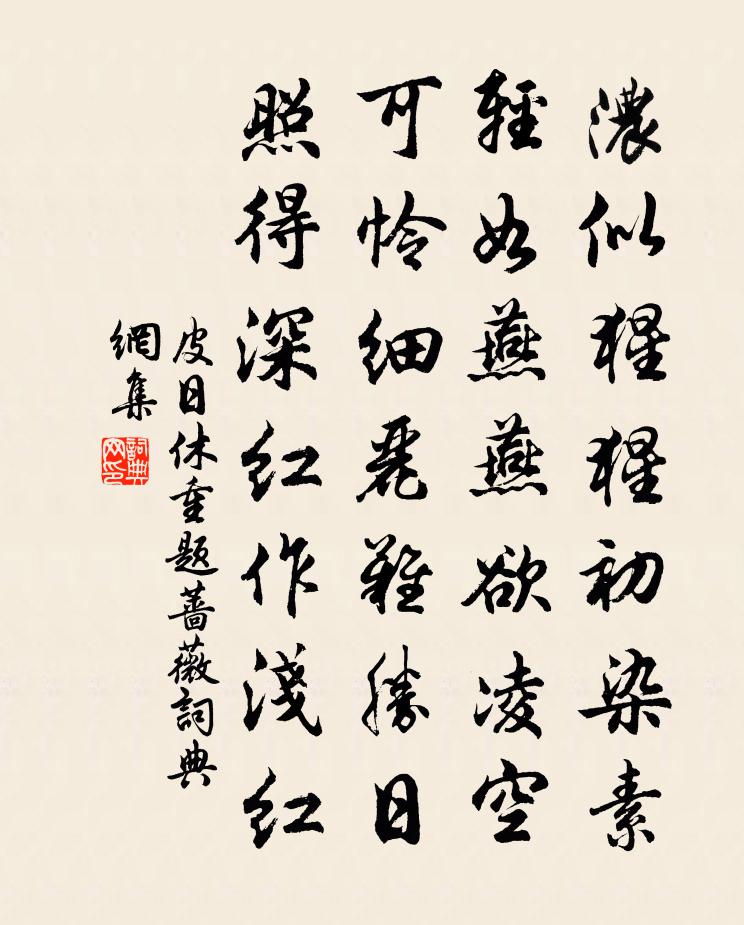 濃似猩猩初染素
輕如燕燕欲凌空
可怜細麗難勝日
照得深紅作淺紅
皮日休重题薔薇詞典
網集
詞典
网印